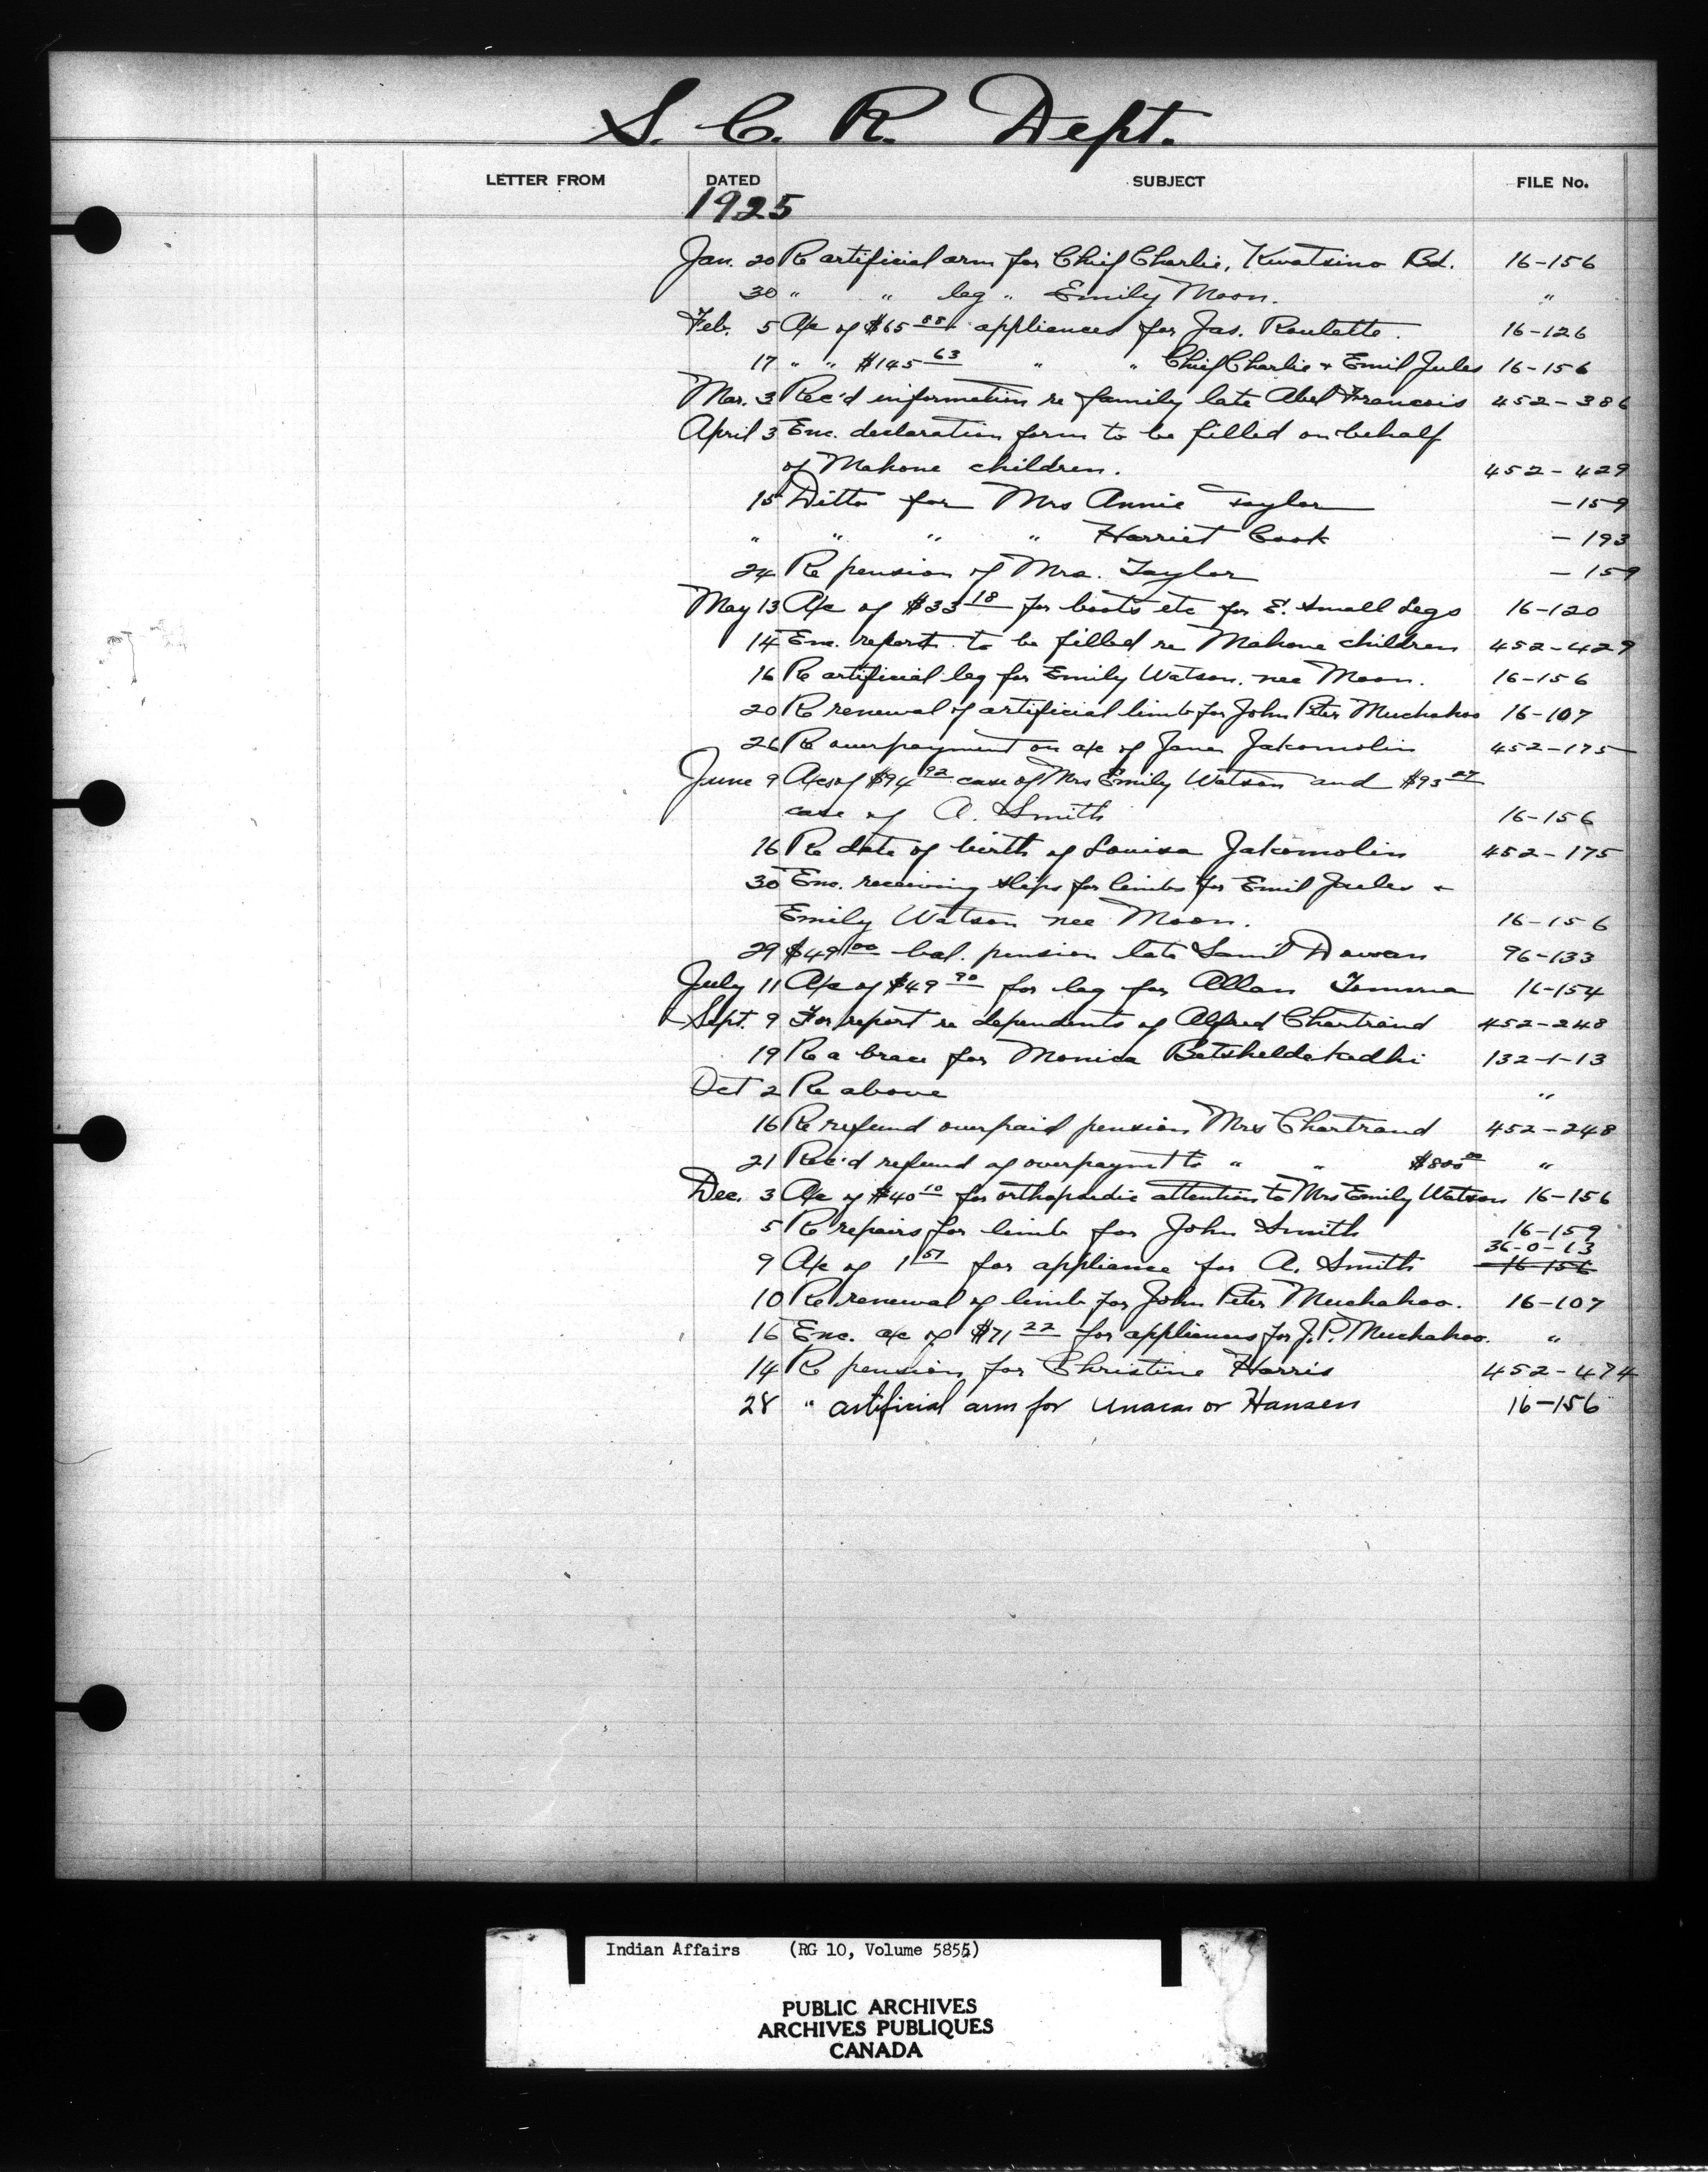 S. C. R. Dept.
LETTER FROM DATED SUBJECT FILE No.
1925
Jan. 20 Re artificial arm for Chief Charlie, Kwatsino Bd. 16-156
30 " " leg " Emily Moon. "
Feb. 5 A/c of $65 88 appliances for Jas. Roulette. 16-126
17 " " $145 63 " " Chief Charlie + Emil Jules 16-156
Mar. 3 Rec'd information re family late Abel Francois 452-386
April 3 Enc. declaration form to be filled on behalf
of Mahone children. 452-429
15 Ditto for Mrs Annie Taylor -159
" " " " Harriet Cook -193
24 Re pension of Mrs. Taylor -159
May 13 A/c of $33 18 for boots etc for E. Small Legs 16-120
14 Enc. report to be filled re Mahone children 452-429
16 Re artificial leg for Emily Watson, nee Moon. 16-156
20 Re renewal of artificial limb for John Peter Muchahoo 16-107
26 Re overpayment on a/c of Jakomolin 452-175
June 9 A/cs of $94 92 case of Mrs Emily Watson and $93
case of A. Smith 16-156
16 Re date of birth of Louisa Jakomolin 452-175
30 Enc. receiving slips for limbs for Emil Jules +
Emily Watson nee Moon. 16-156
29 $49 00 bal. pension late Saml 96-133
July 11 A/c of $49 90 for leg for Allan 16-154
Sept. 9 For report re dependents of Alfred Chartrand 452-248
19 Re a brace for Monica 132-1-13
Oct 2 Re above "
16 Re refund overpaid pension Mrs Chartrand 452-248
21 Rec'd refund of overpaymt to " " $800 00 "
Dec. 3 A/c of $40 10 for orthopaedic attention to Mrs Emily Watson 16-156
5 Re repairs for limb for John Smith 16-159
36-0-13
9 A/c of 1 57 for appliance for A. Smith 16-156
10 Re renewal of limb for John Peter Muchahoo. 16-107
16 Enc. a/c of $71 22 for appliances for J.P. Muchahoo. "
14 Re pension for Christine Harris 452-474
28 " artificial arm for or Hansen 16-156
Indian Affairs (RG 10, Volume 5855)
PUBLIC ARCHIVES
ARCHIVES PUBLIQUES
CANADA